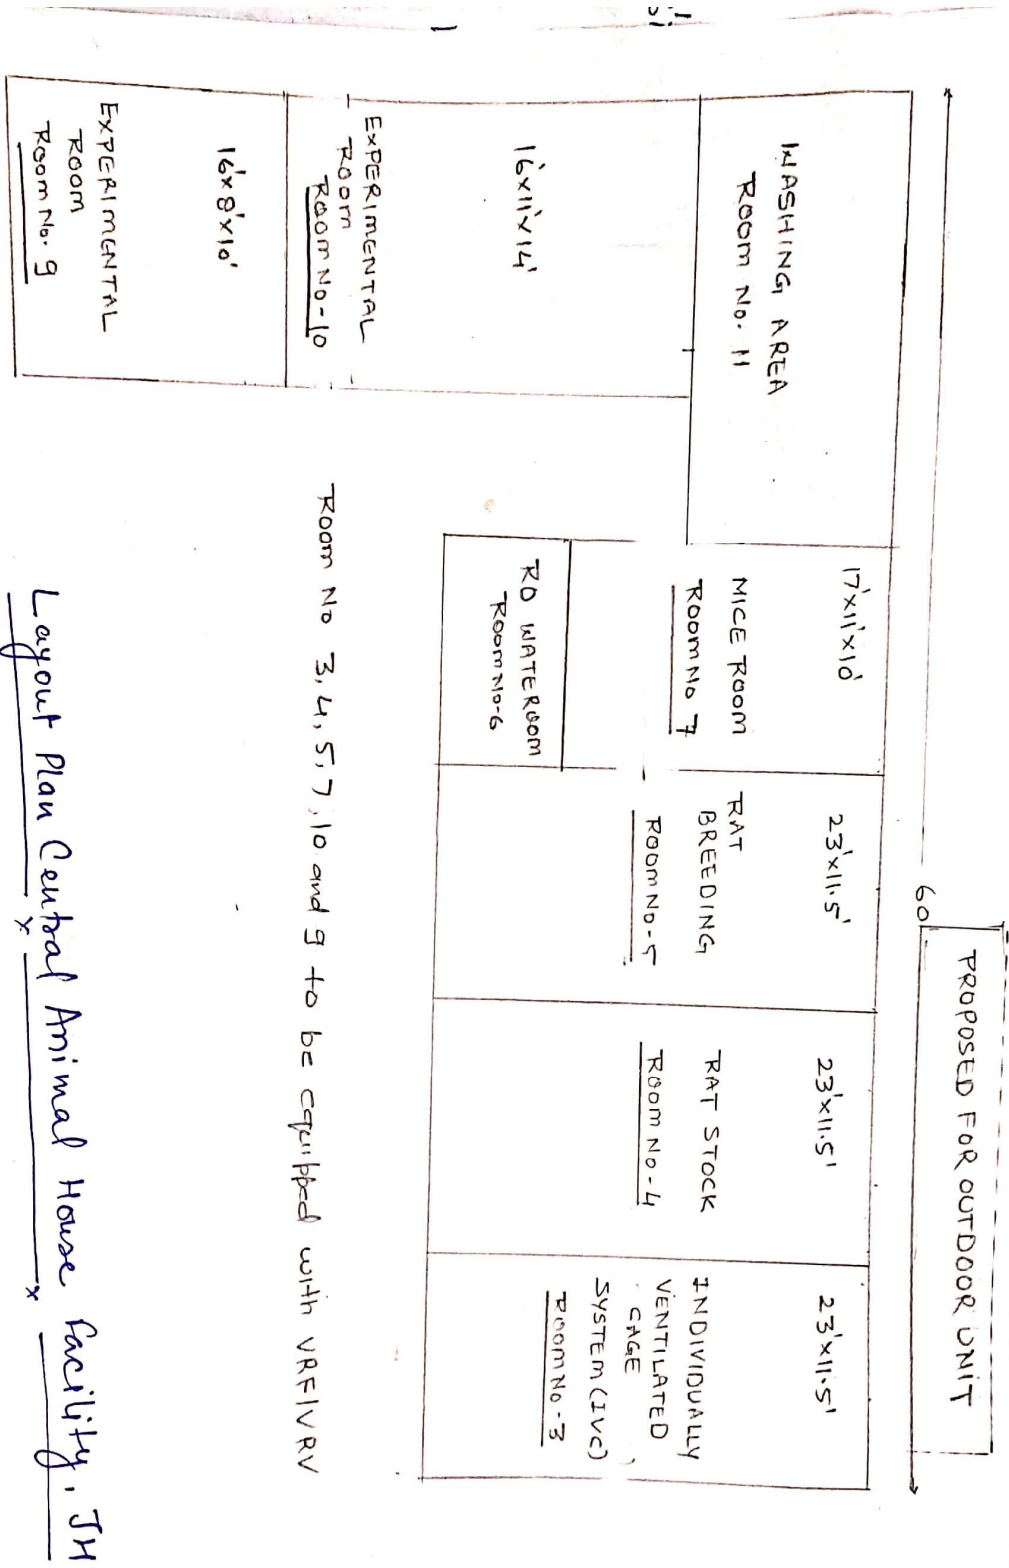 PROPOSED FOR OUTDOOR UNIT
60'
WASHING AREA
ROOM No. 11
17'x11'x10'
MICE ROOM
ROOM No 7
23'x11.5'
RAT
BREEDING
ROOM No-5
23'x11.5'
RAT STOCK
ROOM No-4
23'x11.5'
INDIVIDUALLY
VENTILATED
CAGE
SYSTEM (IVC)
ROOM No-3
RO WATEROOM
ROOM No-6
16'x11'x14'
EXPERIMENTAL
ROOM
ROOM No-10
16'x8'x10'
EXPERIMENTAL
ROOM
ROOM No. 9
Room No 3,4,5,7,10 and 9 to be equipped with VRF/VRV
Layout Plan Central Animal House Facility, JH